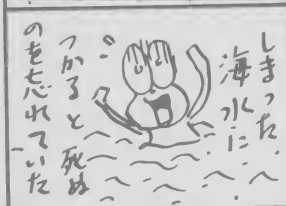 しまった
海水に
つかると死ぬ
のを忘れていた